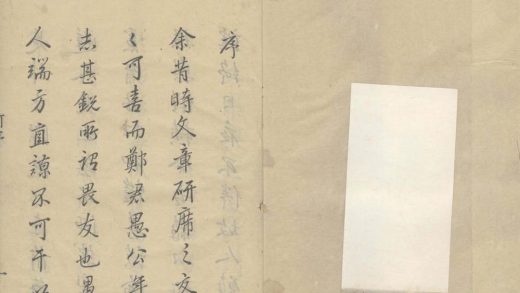 序
余昔時文章研席之交
〻可喜而鄭君愚公年
志甚銳所謂畏友也
人端方直諒不可干以